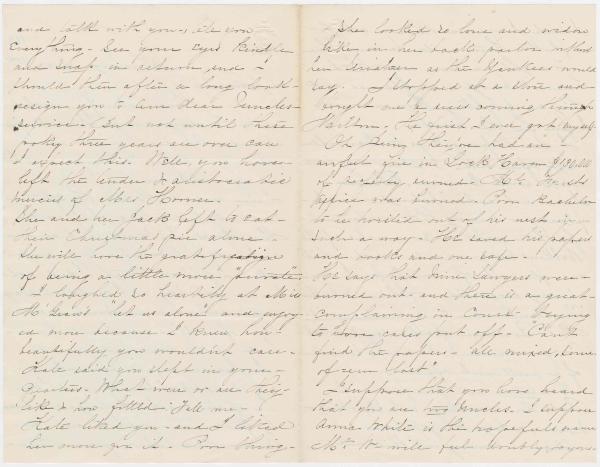 and talk with you, tell you
everything - See your eyes kindle
and snap in return, and I
should then after a long look
resign you to Aunt dear Uncles
service. But not until these
three years are over can
I expect this. Well, you have
left the tender & aristocratic
mercies of Mrs Hoover.
She and her Jack left to eat
their Christmas pie alone.
She will have the gratification
of being a little more "private"
I laughed so heartily at Miss
"let us alone" and enjoy-
ed more because I knew how
beautifully you wouldn't care.
Kate said you slept in your
quarters. What were or are they
like & how fitted. Tell me.
Kate liked you - and I liked
her more for it. Poor thing -
She looked so lone and widow
like in her back parlor without
her as the Yankees would
say. I stopped at a store and
bought one I was coming through
The first I ever got myself.
Oh they've had an
awful fire in Lock Haven $190,000
of property burned. Mr.
office was burned. Poor Bachelor
to be hoisted out of his nest in
such a way. He saved his papers
and books and one safe.
He says that nine Lawyers were
burned out and there is a great
complaining in Court - trying
to have cases put off - "Can't
find the papers - all mixed, some
of 'em lost"
I suppose that you have heard
that you are two Uncles. I suppose
Anna White is the hopeful's name
Mr. W will feel doubly so you